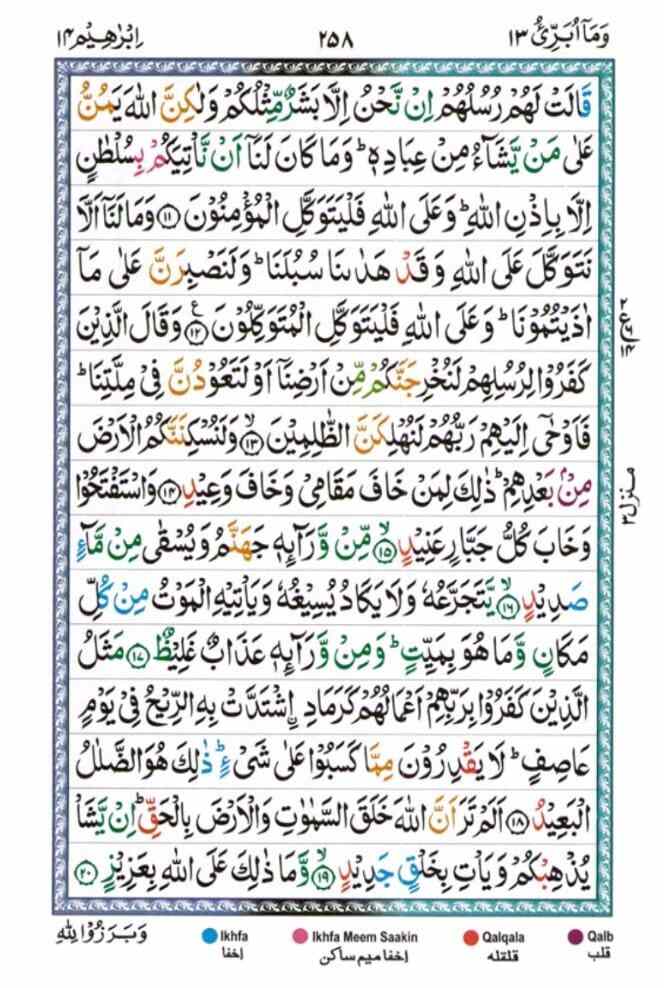 وَمَآ اُبَرِّئُ ١٣
٢٥٨
اِبْرٰهِيْم ١٤
قَالَتْ لَهُمْ رُسُلُهُمْ اِنْ نَّحْنُ اِلَّا بَشَرٌ مِّثْلُكُمْ وَلٰكِنَّ اللّٰهَ يَمُنُّ
عَلٰى مَنْ يَّشَآءُ مِنْ عِبَادِهٖ ؕ وَمَا كَانَ لَنَآ اَنْ نَّاْتِيَكُمْ بِسُلْطٰنٍ
اِلَّا بِاِذْنِ اللّٰهِ ؕ وَعَلَى اللّٰهِ فَلْيَتَوَكَّلِ الْمُؤْمِنُوْنَ ﴿١١﴾ وَمَا لَنَآ اَلَّا
نَتَوَكَّلَ عَلَى اللّٰهِ وَقَدْ هَدٰىنَا سُبُلَنَا ؕ وَلَنَصْبِرَنَّ عَلٰى مَآ
اٰذَيْتُمُوْنَا ؕ وَعَلَى اللّٰهِ فَلْيَتَوَكَّلِ الْمُتَوَكِّلُوْنَ ﴿١٢﴾ وَقَالَ الَّذِيْنَ
كَفَرُوْا لِرُسُلِهِمْ لَنُخْرِجَنَّكُمْ مِّنْ اَرْضِنَآ اَوْ لَتَعُوْدُنَّ فِيْ مِلَّتِنَا ؕ
فَاَوْحٰٓى اِلَيْهِمْ رَبُّهُمْ لَنُهْلِكَنَّ الظّٰلِمِيْنَ ﴿١٣﴾ وَلَنُسْكِنَنَّكُمُ الْاَرْضَ
مِنْۢ بَعْدِهِمْ ؕ ذٰلِكَ لِمَنْ خَافَ مَقَامِيْ وَخَافَ وَعِيْدِ ﴿١٤﴾ وَاسْتَفْتَحُوْا
وَخَابَ كُلُّ جَبَّارٍ عَنِيْدٍ ﴿١٥﴾ مِّنْ وَّرَآئِهٖ جَهَنَّمُ وَيُسْقٰى مِنْ مَّآءٍ
صَدِيْدٍ ﴿١٦﴾ يَّتَجَرَّعُهٗ وَلَا يَكَادُ يُسِيْغُهٗ وَيَاْتِيْهِ الْمَوْتُ مِنْ كُلِّ
مَكَانٍ وَّمَا هُوَ بِمَيِّتٍ ؕ وَمِنْ وَّرَآئِهٖ عَذَابٌ غَلِيْظٌ ﴿١٧﴾ مَثَلُ
الَّذِيْنَ كَفَرُوْا بِرَبِّهِمْ اَعْمَالُهُمْ كَرَمَادِ ۨاشْتَدَّتْ بِهِ الرِّيْحُ فِيْ يَوْمٍ
عَاصِفٍ ؕ لَا يَقْدِرُوْنَ مِمَّا كَسَبُوْا عَلٰى شَيْءٍ ؕ ذٰلِكَ هُوَ الضَّلٰلُ
الْبَعِيْدُ ﴿١٨﴾ اَلَمْ تَرَ اَنَّ اللّٰهَ خَلَقَ السَّمٰوٰتِ وَالْاَرْضَ بِالْحَقِّ ؕ اِنْ يَّشَاْ
يُذْهِبْكُمْ وَيَاْتِ بِخَلْقٍ جَدِيْدٍ ﴿١٩﴾ وَّمَا ذٰلِكَ عَلَى اللّٰهِ بِعَزِيْزٍ ﴿٢٠﴾
٢ ع ٦ ١٤
منزل ٣
وَبَرَزُوْا لِلّٰهِ
Ikhfa
اخفا
Ikhfa Meem Saakin
اخفا میم ساکن
Qalqala
قلقله
Qalb
قلب